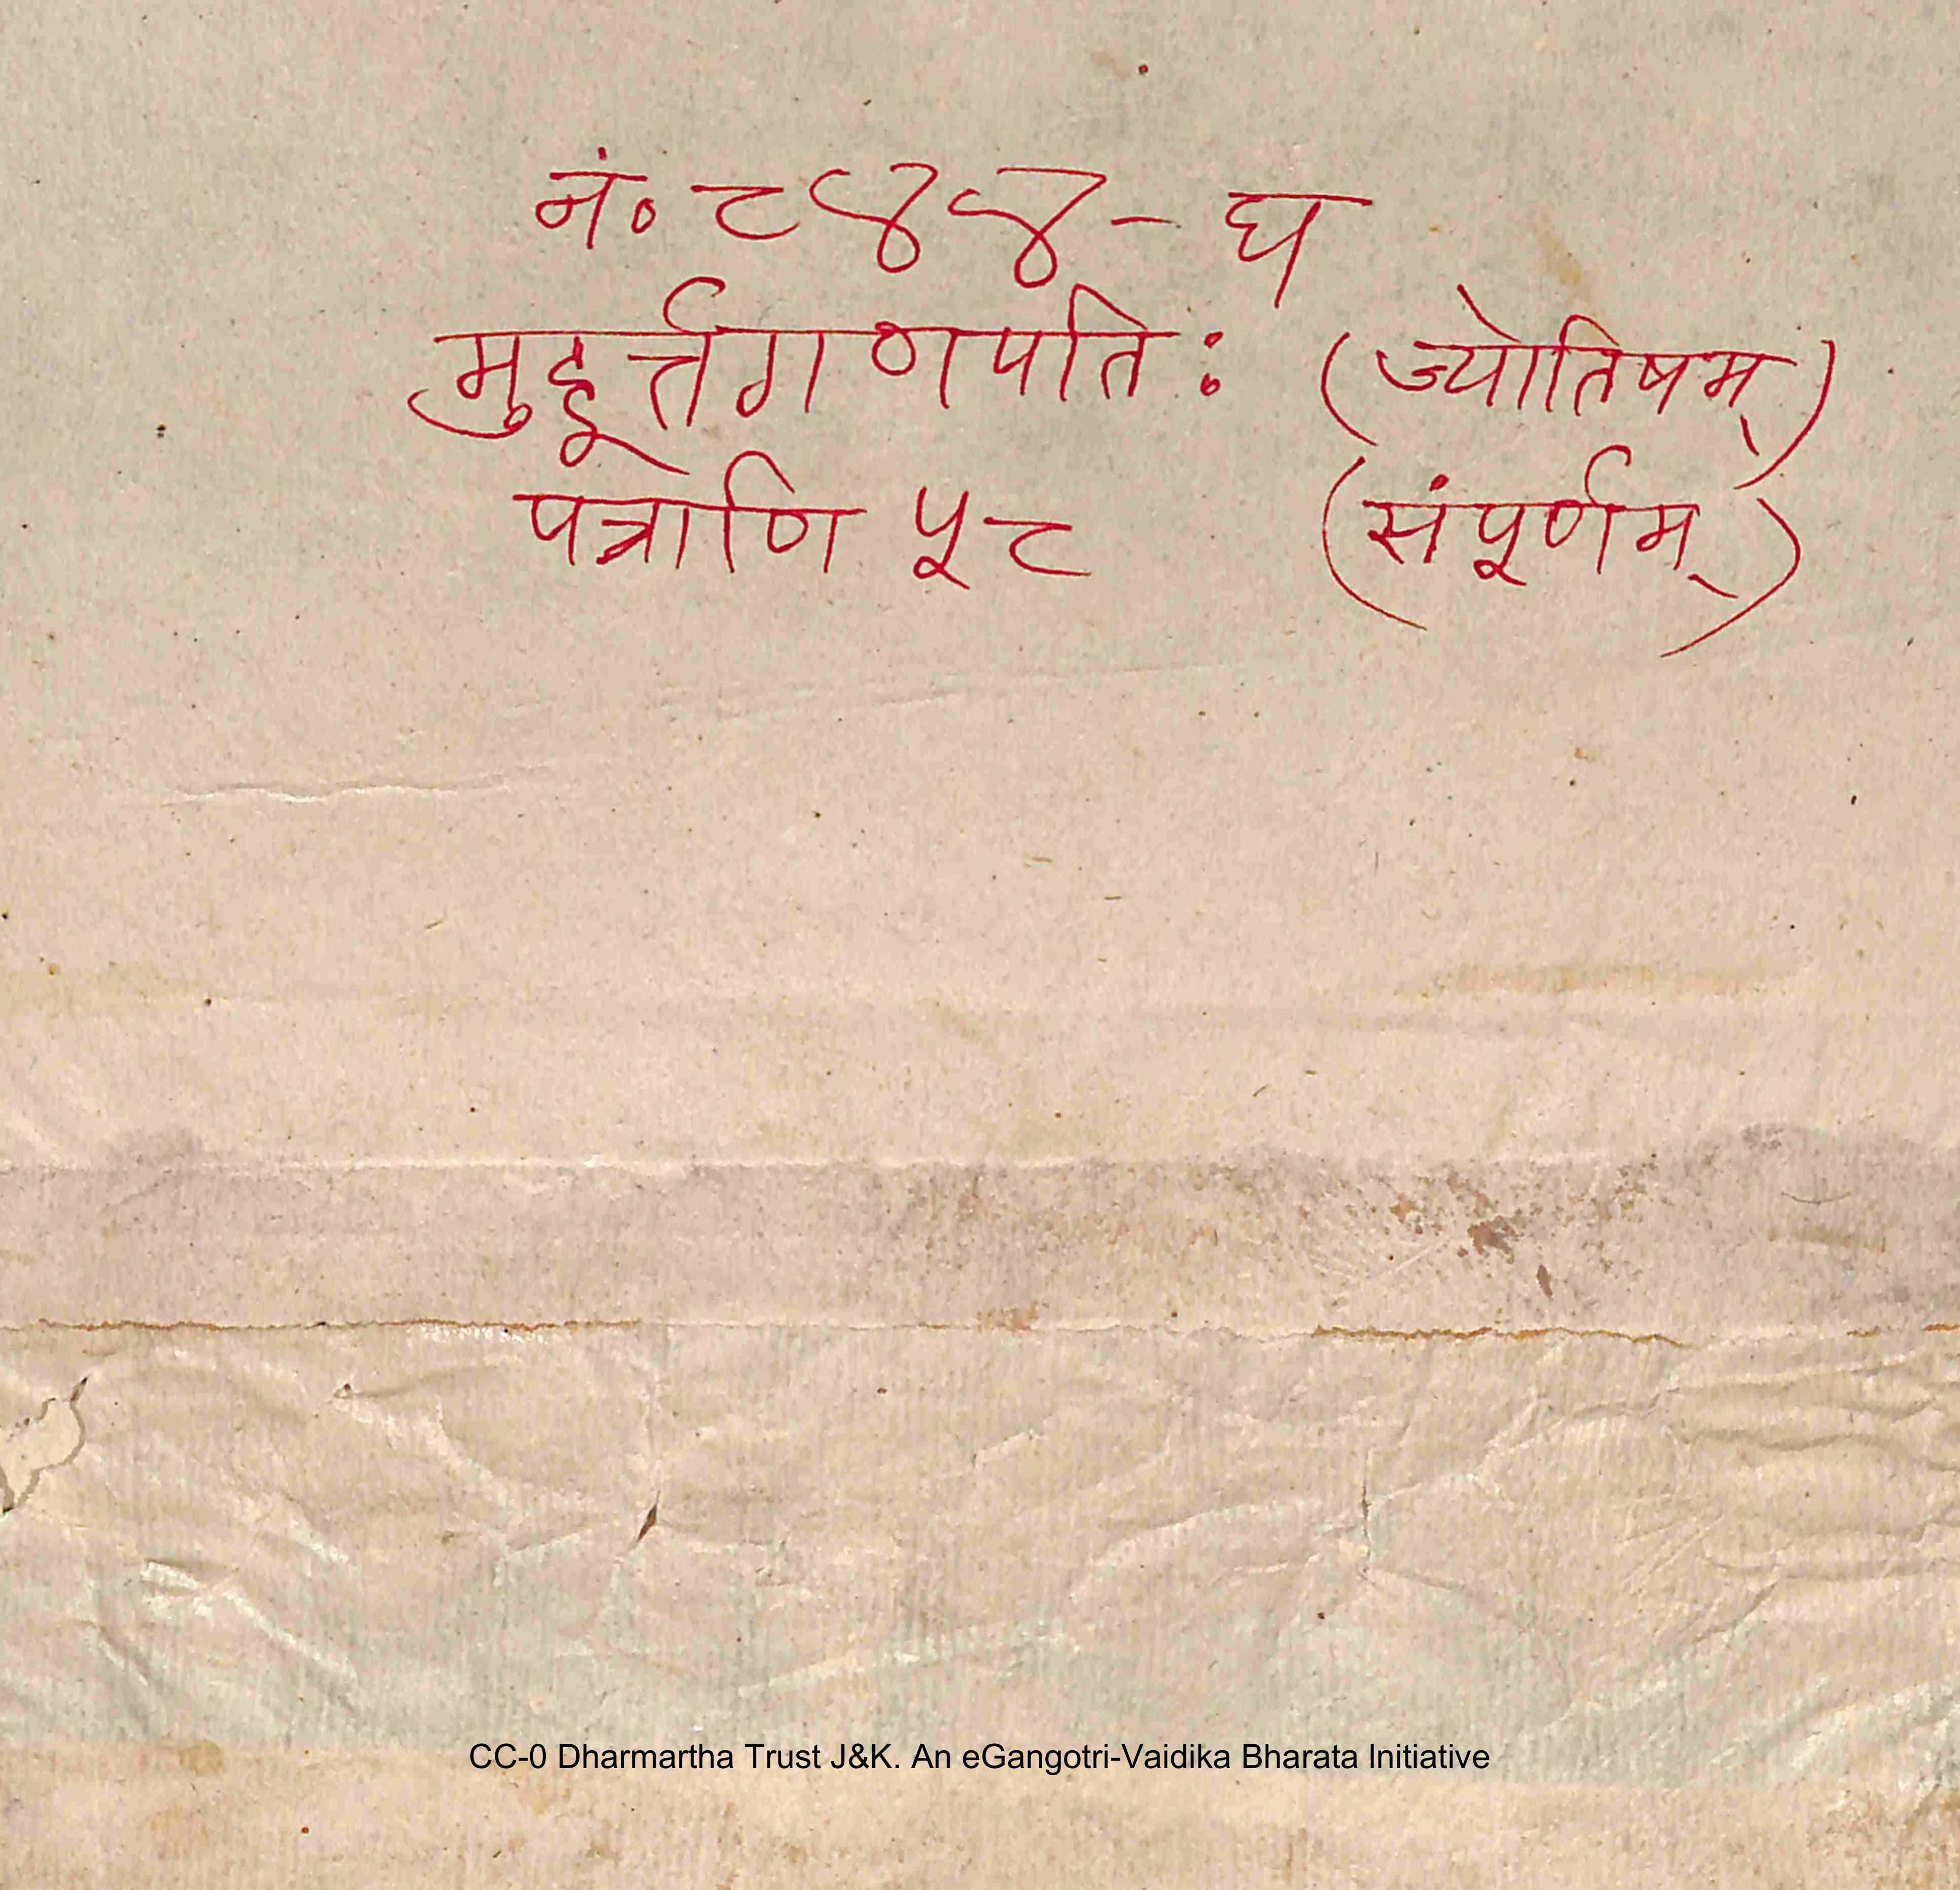 नं० ८४४- घ
मुहूर्त्तगणपतिः (ज्योतिषम्)
पत्राणि ५८ (संपूर्णम्)
CC-0 Dharmartha Trust J&K. An eGangotri-Vaidika Bharata Initiative